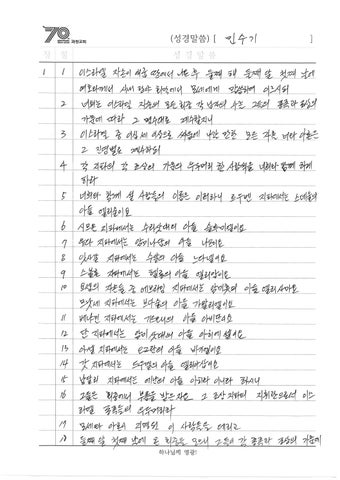 70 과천교회 (성경말씀) [ 민수기 ]
장 절 성 경 말 씀
1 1 이스라엘 자손이 애굽 땅에서 나온 후 둘째 해 둘째 달 첫째 날에
여호와께서 시내 광야 회막에서 모세에게 말씀하여 이르시되
2 너희는 이스라엘 자손의 모든 회중 각 남자의 수를 그들의 종족과 조상의
가문에 따라 그 명수대로 계수할지니
3 이스라엘 중 이십 세 이상으로 싸움에 나갈 만한 모든 자를 너와 아론은
그 진영별로 계수하되
4 각 지파의 각 조상의 가문의 우두머리 한 사람씩을 너희와 함께 하게
하라
5 너희와 함께 설 사람들의 이름은 이러하니 르우벤 지파에서는 스데울의
아들 엘리술이요
6 시므온 지파에서는 수리삿대의 아들 슬루미엘이요
7 유다 지파에서는 암미나답의 아들 나손이요
8 잇사갈 지파에서는 수알의 아들 느다넬이요
9 스불론 지파에서는 헬론의 아들 엘리압이요
10 요셉의 자손들 중 에브라임 지파에서는 암미훗의 아들 엘리사마요
므낫세 지파에서는 브다술의 아들 가말리엘이요
11 베냐민 지파에서는 기드오니의 아들 아비단이요
12 단 지파에서는 암미삿대의 아들 아히에셀이요
13 아셀 지파에서는 오그란의 아들 바기엘이요
14 갓 지파에서는 드우엘의 아들 엘리아삽이요
15 납달리 지파에서는 에난의 아들 아히라이니라 하시니
16 그들은 회중에서 부름을 받은 자요 그 조상 지파의 지휘관으로서 이스
라엘 종족들의 우두머리라
17 모세와 아론이 지명된 이 사람들을 데리고
18 둘째 달 첫째 날에 온 회중을 모으니 그들이 각 종족과 조상의 가문에
하나님께 영광!